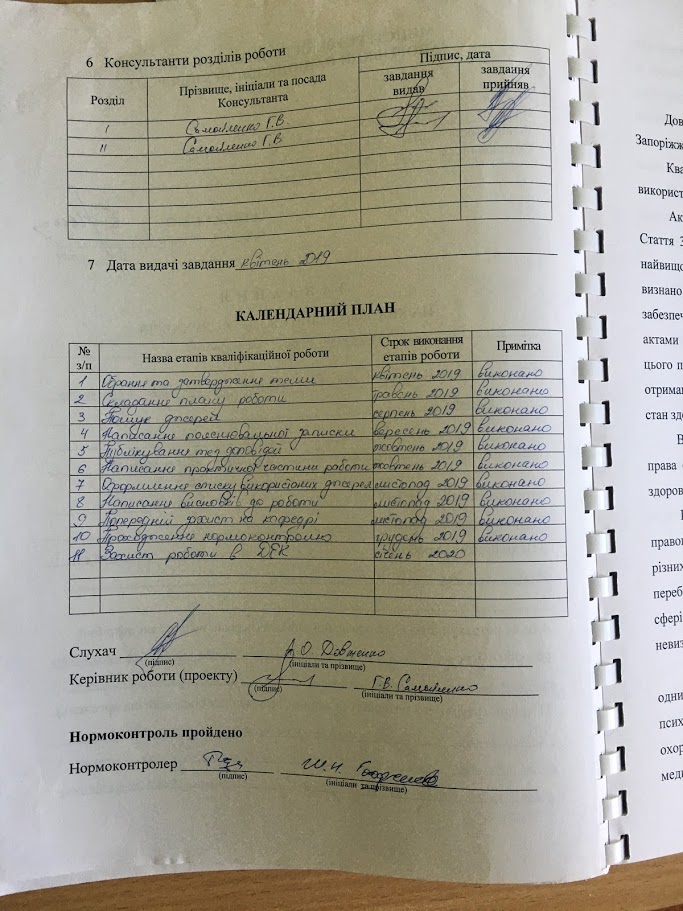 6 Консультанти розділів роботи
Розділ
Прізвище, ініціали та посада
Консультанта
Підпис, дата
завдання
видав
завдання
прийняв
I Самойленко Г.В.
II Самойленко Г.В.
7 Дата видачі завдання квітень 2019
КАЛЕНДАРНИЙ ПЛАН
№
з/п
Назва етапів кваліфікаційної роботи
Строк виконання
етапів роботи
Примітка
1 Обрання та затвердження теми квітень 2019 виконано
2 Складання плану роботи травень 2019 виконано
3 Пошук джерел серпень 2019 виконано
4 Написання пояснювальної записки вересень 2019 виконано
5 Публікування тез доповідей жовтень 2019 виконано
6 Написання практичної частини роботи жовтень 2019 виконано
7 Оформлення списку використаних джерел листопад 2019 виконано
8 Написання висновків до роботи листопад 2019 виконано
9 Попередній захист на кафедрі листопад 2019 виконано
10 Проходження нормоконтролю грудень 2019 виконано
11 Захист роботи в ДЕК січень 2020
Слухач
(підпис) (ініціали та прізвище)
Керівник роботи (проекту) Г.В. Самойленко
(підпис) (ініціали та прізвище)
Нормоконтроль пройдено
Нормоконтролер
(підпис) (ініціали та прізвище)
Дов
Запоріжж
Ква
використ
Ак
Стаття З
найвищо
визнано
забезпеч
актами
цього п
отриман
стан здо
В
права
здоров
правог
різних
переб
сфері
невиз
одни
псих
охор
меди